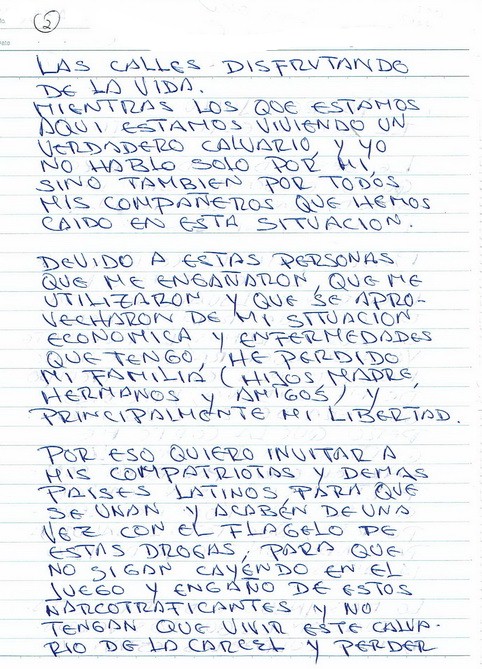 2
LAS CALLES DISFRUTANDO
DE LA VIDA.
MIENTRAS LOS QUE ESTAMOS
AQUI ESTAMOS VIVIENDO UN
VERDADERO CALVARIO, Y YO
NO HABLO SOLO POR MI,
SINO TAMBIEN POR TODOS
MIS COMPAÑEROS QUE HEMOS
CAIDO EN ESTA SITUACION.
DEVIDO A ESTAS PERSONAS
QUE ME ENGAÑARON, QUE ME
UTILIZARON Y QUE SE APRO-
VECHARON DE MI SITUACION
ECONOMICA Y ENFERMEDADES
QUE TENGO, HE PERDIDO
MI FAMILIA (HIJOS, MADRE,
HERMANOS Y AMIGOS) Y
PRINCIPALMENTE MI LIBERTAD.
POR ESO QUIERO INVITAR A
MIS COMPATRIOTAS Y DEMAS
PAISES LATINOS, PARA QUE
SE UNAN Y ACABEN DE UNA
VEZ CON EL FLAGELO DE
ESTAS DROGAS, PARA QUE
NO SIGAN CAYENDO EN EL
JUEGO Y ENGAÑO DE ESTOS
NARCOTRAFICANTES Y NO
TENGAN QUE VIVIR ESTE CALVA-
RIO DE LA CARCEL Y PERDER